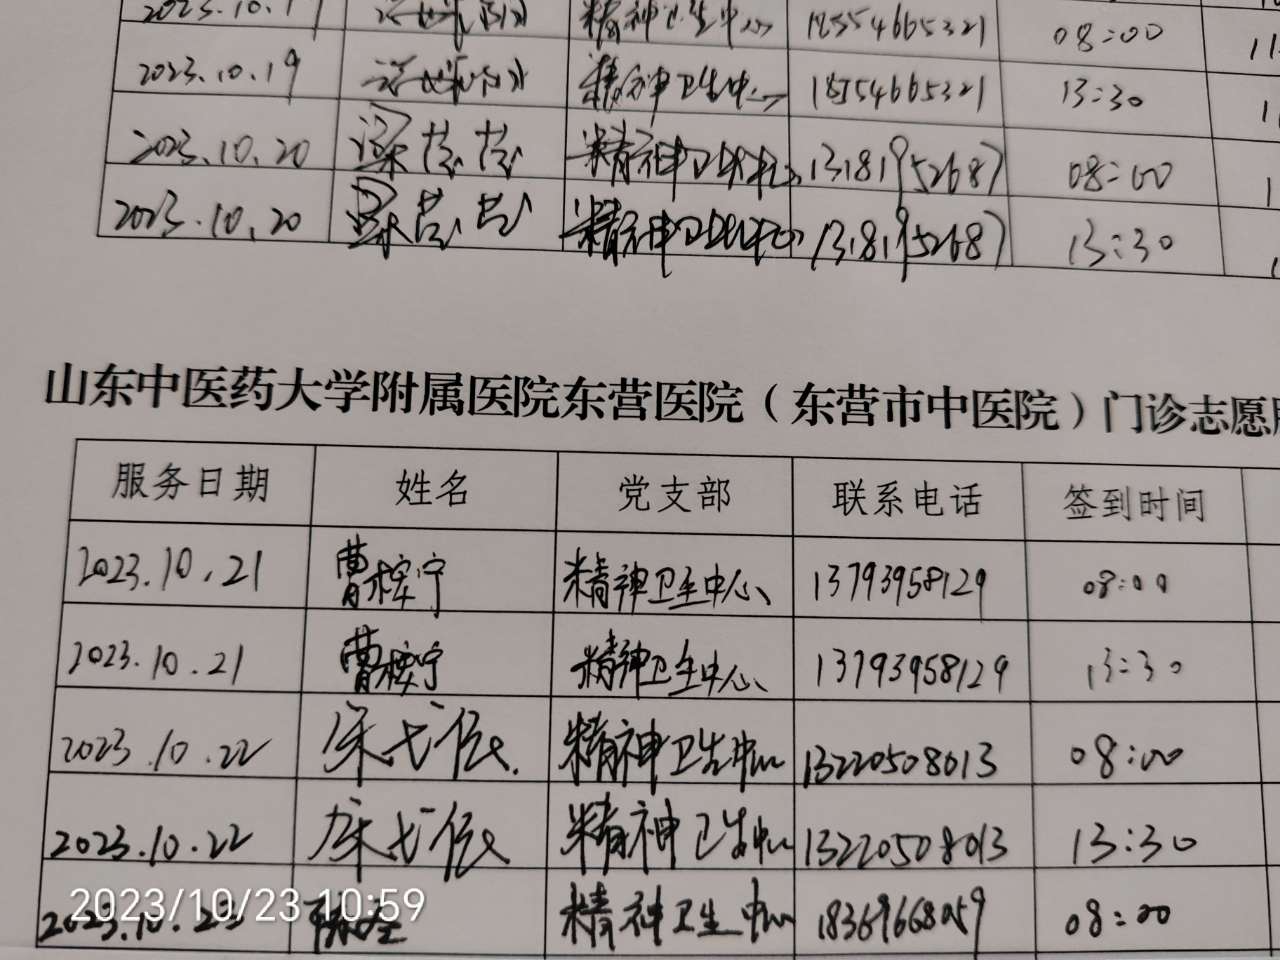 精神卫生中心 18554665321 08:00
2023.10.19 精神卫生中心 18554665321 13:30
2023.10.20 梁芸芸 精神卫生中心 13181952687 08:00
2023.10.20 梁芸芸 精神卫生中心 13181952687 13:30
山东中医药大学附属医院东营医院（东营市中医院）门诊志愿
服务日期 姓名 党支部 联系电话 签到时间
2023.10.21 曹梓宁 精神卫生中心 13793958129 08:00
2023.10.21 曹梓宁 精神卫生中心 13793958129 13:30
2023.10.22 精神卫生中心 13220508013 08:00
2023.10.22 精神卫生中心 13220508013 13:30
2023/10/23 10:59
精神卫生中心 18369668059 08:00